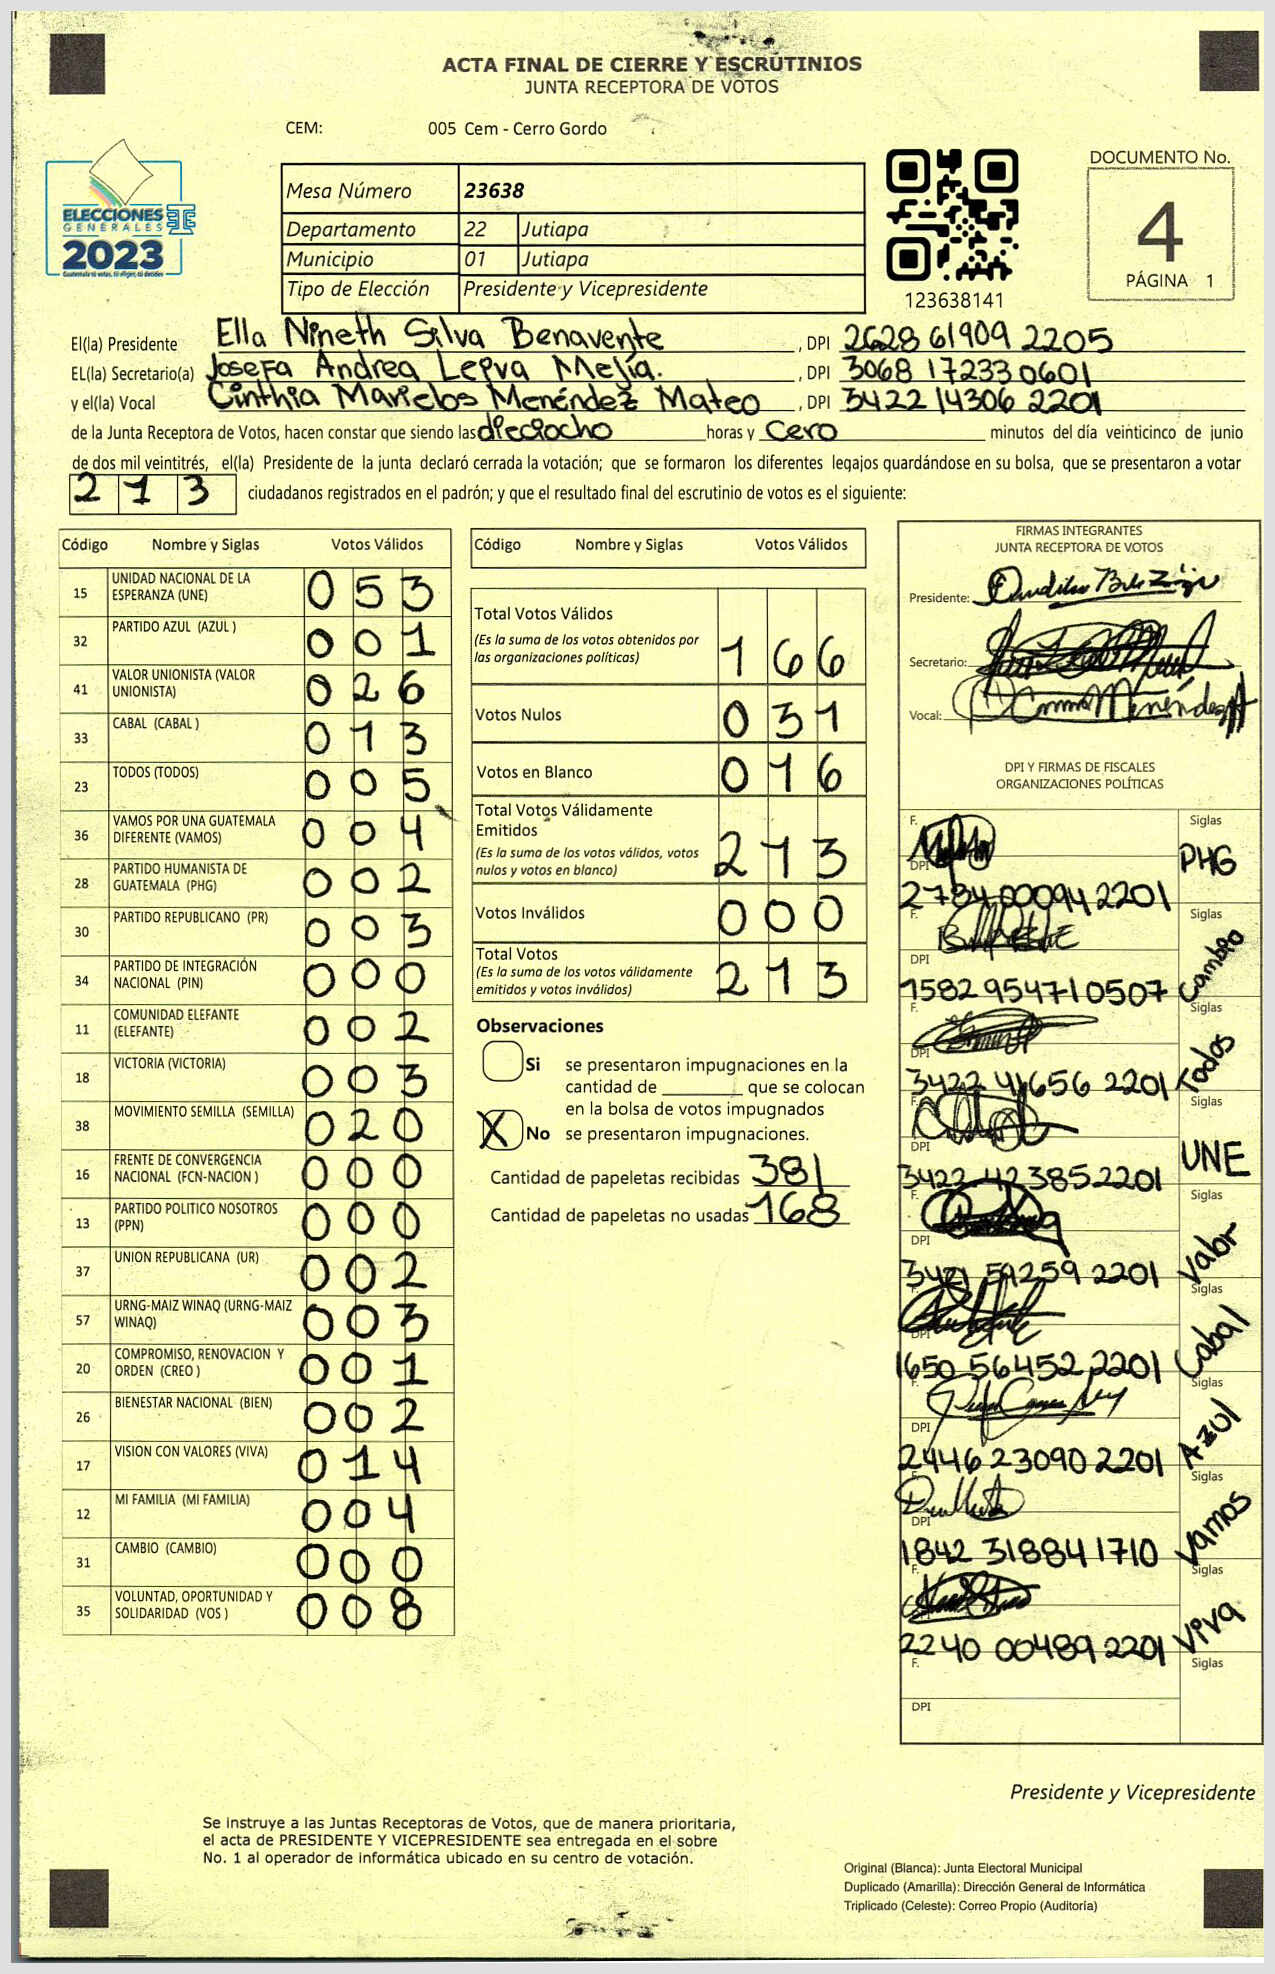 ACTA FINAL DE CIERRE Y ESCRUTINIOS
JUNTA RECEPTORA DE VOTOS
CEM: 005 Cem - Cerro Gordo
DOCUMENTO No.
4
PÁGINA 1
ELECCIONES
GENERALES
2023
Guatemala tú votas, tú eliges, tú decides
Mesa Número 23638
Departamento 22 Jutiapa
Municipio 01 Jutiapa
Tipo de Elección Presidente y Vicepresidente
123638141
El(la) Presidente Ella Nineth Silva Benavente, DPI 2628 61909 2205
EL(la) Secretario(a) Josefa Andrea Leiva Mejía., DPI 3068 17233 0601
y el(la) Vocal Cinthia Marielos Menéndez Mateo, DPI 3422 14306 2201
de la Junta Receptora de Votos, hacen constar que siendo las dieciocho horas y cero minutos del día veinticinco de junio
de dos mil veintitrés, el(la) Presidente de la junta declaró cerrada la votación; que se formaron los diferentes legajos guardándose en su bolsa, que se presentaron a votar
213 ciudadanos registrados en el padrón; y que el resultado final del escrutinio de votos es el siguiente:
Código Nombre y Siglas Votos Válidos
15 UNIDAD NACIONAL DE LA ESPERANZA (UNE) 053
32 PARTIDO AZUL (AZUL ) 001
41 VALOR UNIONISTA (VALOR UNIONISTA) 026
33 CABAL (CABAL ) 013
23 TODOS (TODOS) 005
36 VAMOS POR UNA GUATEMALA DIFERENTE (VAMOS) 004
28 PARTIDO HUMANISTA DE GUATEMALA (PHG) 002
30 PARTIDO REPUBLICANO (PR) 003
34 PARTIDO DE INTEGRACIÓN NACIONAL (PIN) 000
11 COMUNIDAD ELEFANTE (ELEFANTE) 002
18 VICTORIA (VICTORIA) 003
38 MOVIMIENTO SEMILLA (SEMILLA) 020
16 FRENTE DE CONVERGENCIA NACIONAL (FCN-NACION ) 000
13 PARTIDO POLITICO NOSOTROS (PPN) 000
37 UNION REPUBLICANA (UR) 002
57 URNG-MAIZ WINAQ (URNG-MAIZ WINAQ) 003
20 COMPROMISO, RENOVACION Y ORDEN (CREO ) 001
26 BIENESTAR NACIONAL (BIEN) 002
17 VISION CON VALORES (VIVA) 014
12 MI FAMILIA (MI FAMILIA) 004
31 CAMBIO (CAMBIO) 000
35 VOLUNTAD, OPORTUNIDAD Y SOLIDARIDAD (VOS ) 008
Código Nombre y Siglas Votos Válidos
Total Votos Válidos
(Es la suma de los votos obtenidos por
las organizaciones políticas) 166
Votos Nulos 031
Votos en Blanco 016
Total Votos Válidamente
Emitidos
(Es la suma de los votos válidos, votos
nulos y votos en blanco) 213
Votos Inválidos 000
Total Votos
(Es la suma de los votos válidamente
emitidos y votos inválidos) 213
Observaciones
Si se presentaron impugnaciones en la
cantidad de ________ que se colocan
en la bolsa de votos impugnados
X No se presentaron impugnaciones.
Cantidad de papeletas recibidas 381
Cantidad de papeletas no usadas 168
FIRMAS INTEGRANTES
JUNTA RECEPTORA DE VOTOS
Presidente:
Secretario:
Vocal:
DPI Y FIRMAS DE FISCALES
ORGANIZACIONES POLÍTICAS
F. Siglas
DPI PHG
2784 00094 2201
F. Siglas
DPI Cambio
1582 95471 0507
F. Siglas
DPI Todos
3422 41656 2201
F. Siglas
DPI UNE
3422 42385 2201
F. Siglas
DPI Valor
3421 54259 2201
F. Siglas
DPI Cabal
1650 56452 2201
F. Siglas
DPI Azul
2446 23090 2201
F. Siglas
DPI Vamos
1842 31884 1710
F. Siglas
Viva
2240 00489 2201
F. Siglas
DPI
Presidente y Vicepresidente
Se instruye a las Juntas Receptoras de Votos, que de manera prioritaria,
el acta de PRESIDENTE Y VICEPRESIDENTE sea entregada en el sobre
No. 1 al operador de informática ubicado en su centro de votación.
Original (Blanca): Junta Electoral Municipal
Duplicado (Amarilla): Dirección General de Informática
Triplicado (Celeste): Correo Propio (Auditoría)